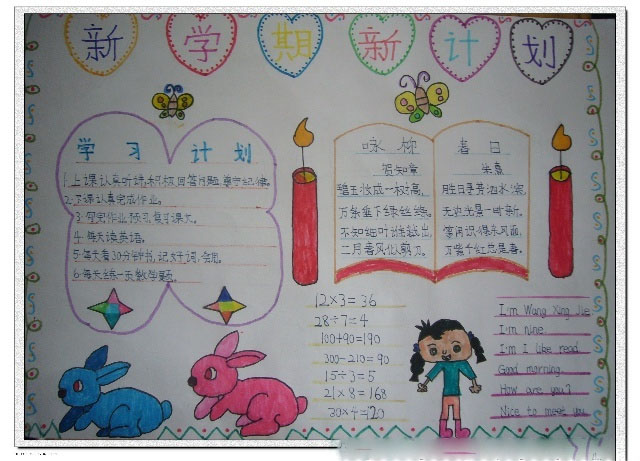 新学期新计划
学习计划
1.上课认真听讲,积极回答问题,遵守纪律。
2.下课认真完成作业。
3.写完作业预习、复习课文。
4.每天读英语。
5.每天看30分钟书,记好词、好句。
6.每天练一页数学题。
咏柳
贺知章
碧玉妆成一树高,
万条垂下绿丝绦。
不知细叶谁裁出,
二月春风似剪刀。
春日
朱熹
胜日寻芳泗水滨,
无边光景一时新。
等闲识得东风面,
万紫千红总是春。
12×3=36
28÷7=4
100+90=190
300-210=90
15÷3=5
21×8=168
30×4=120
I'm Wang Xing Jie
I'm nine.
I'm I like read.
Good morning.
How are you?
Nice to meet you